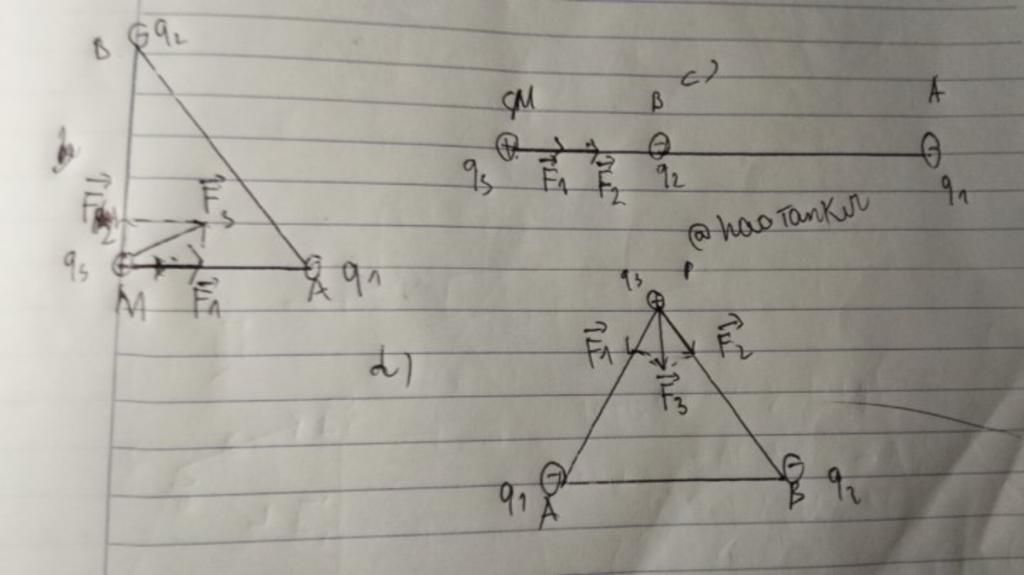 B q2
F3
q3
M F1 A q1
c)
M B A
q3 F1 F2 q2 q1
@haoTanKur
d)
q3 P
F1 F2
F3
q1 A B q2